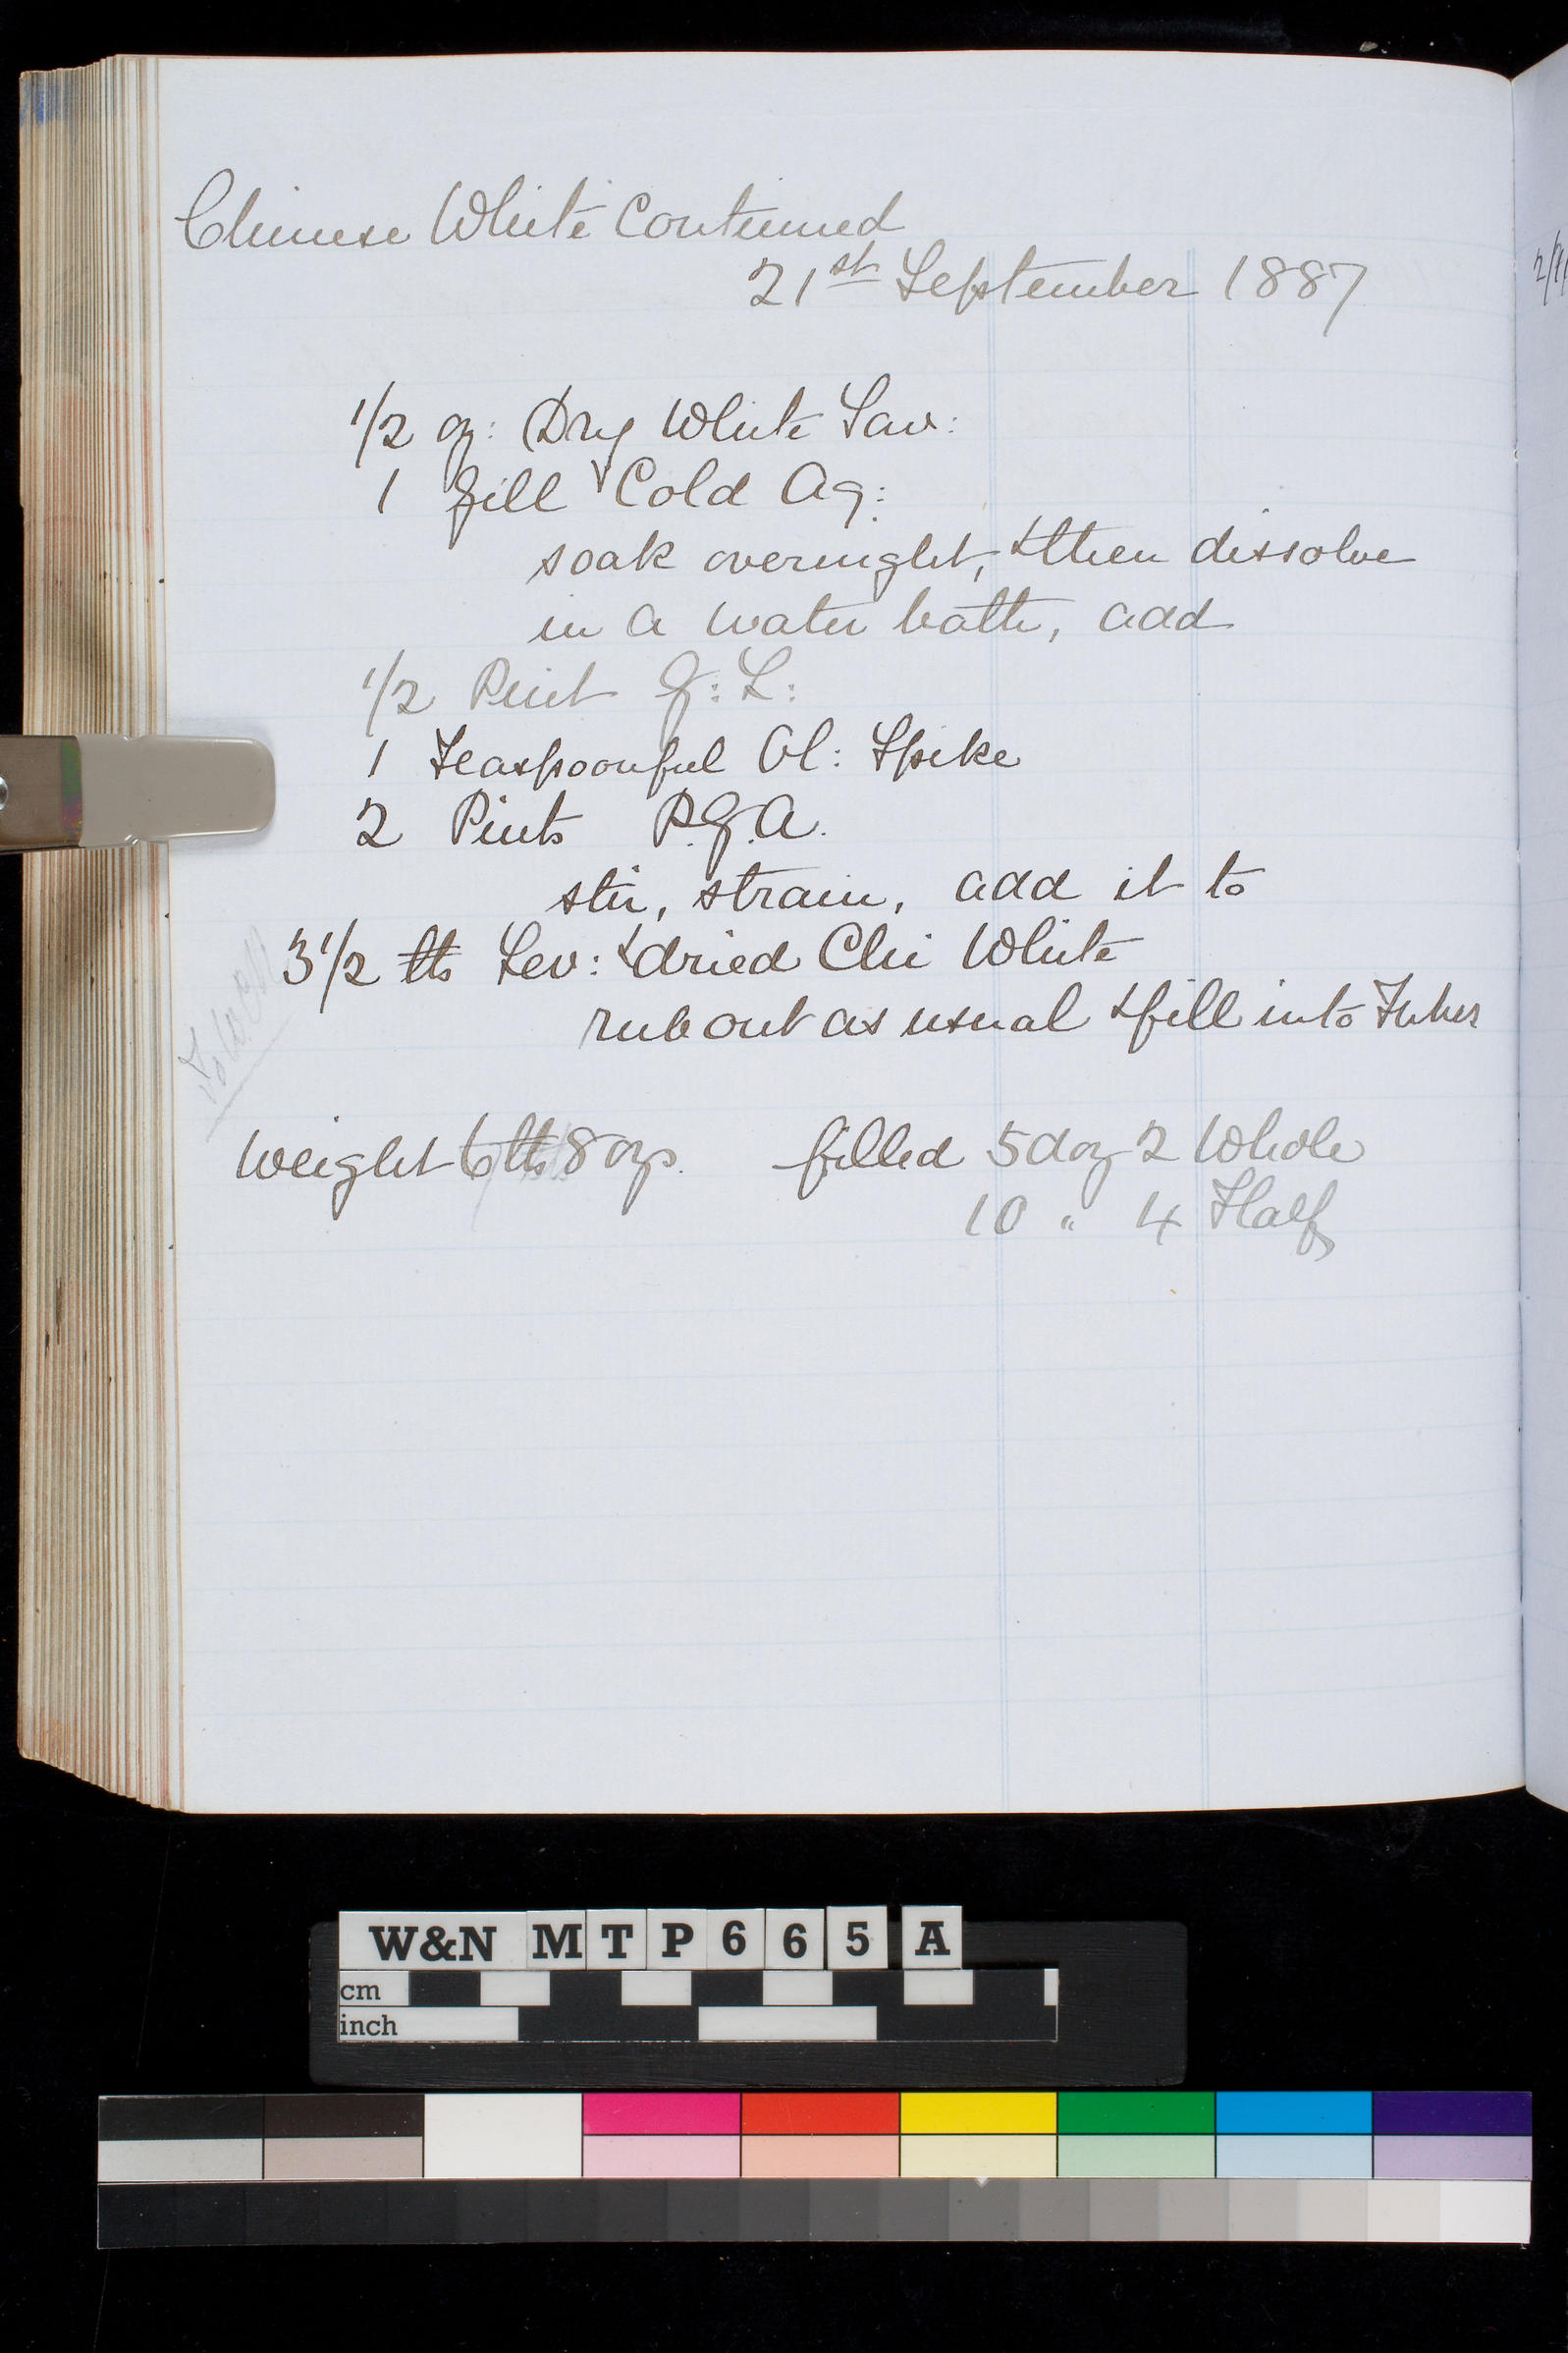 Chinese White Continued
21st September 1887
1/2 oz: Dry White Sav:
1 Gill Cold Aq:
soak overnight, & then dissolve
in a water bath, add
1/2 Pint G: L:
1 Teaspoonful Ol: Spike
2 Pints P.G.A.
stir, strain, add it to
3 1/2 lbs Lev: & dried Chi White
rub out as usual & fill into Tubes
Weight 6 lbs 8 ozs. filled 5 doz 2 Whole
10 " 4 Half
W&N MTP665A
cm
inch